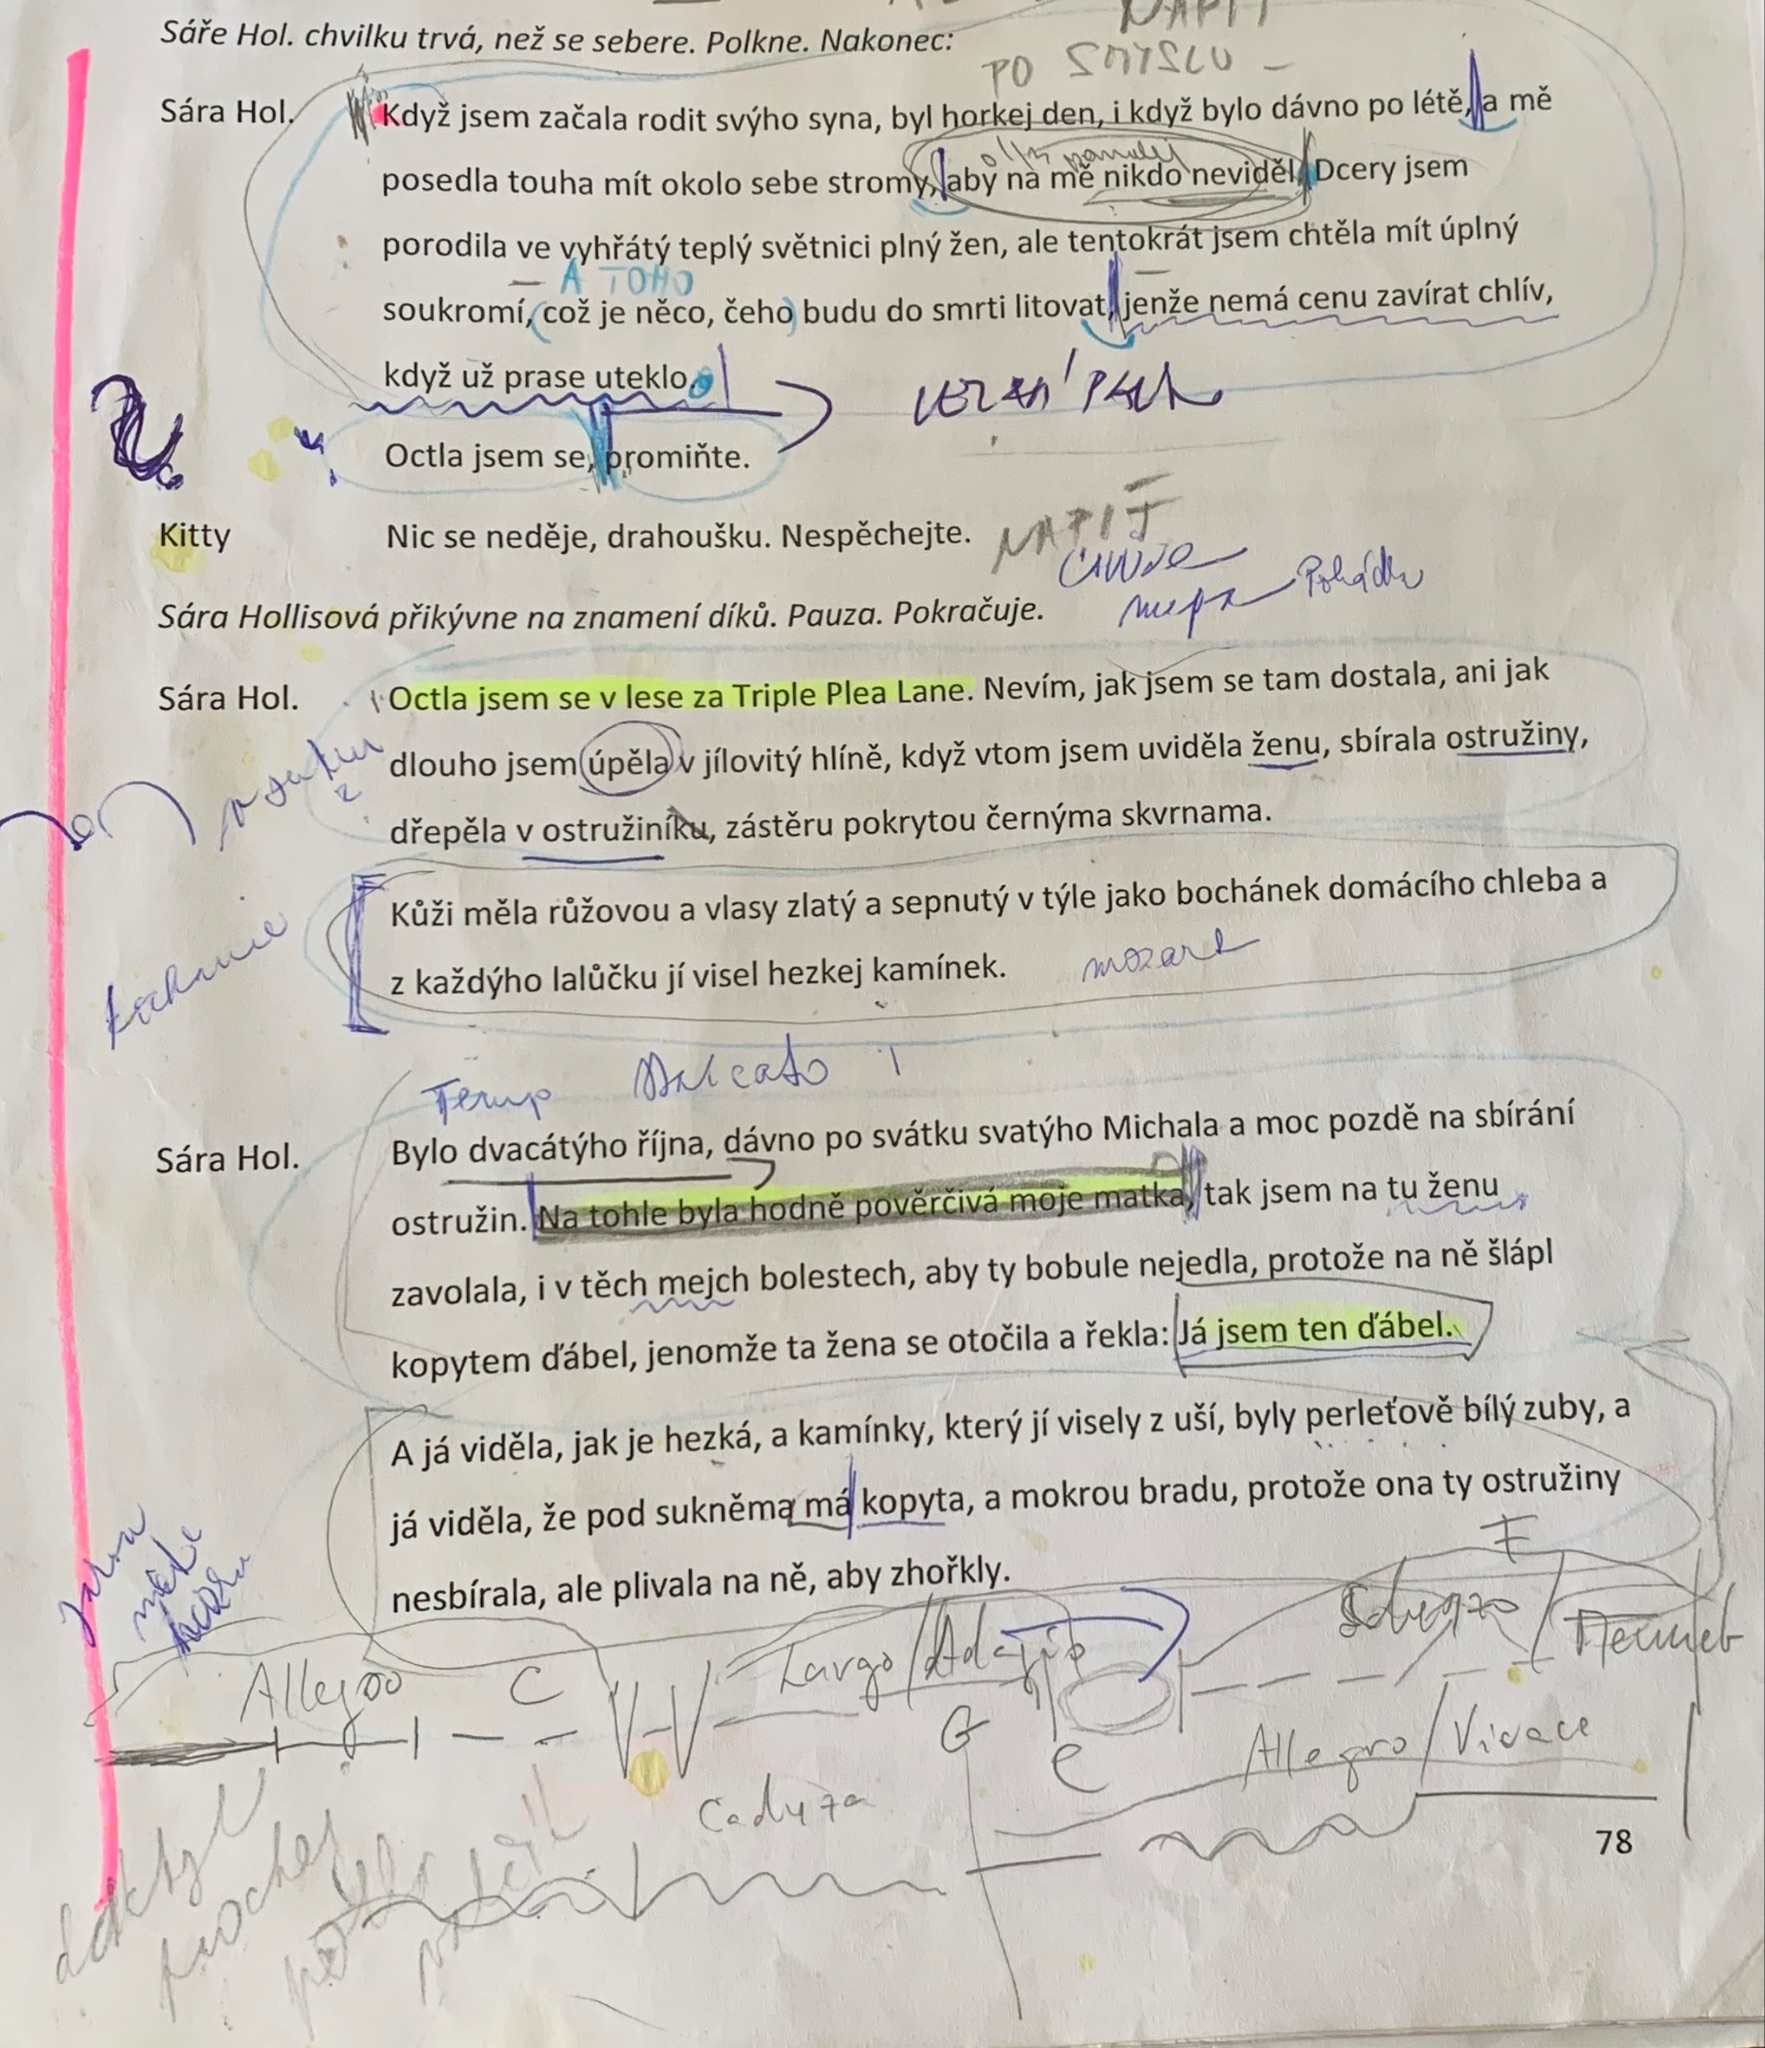 NAPIT
Sáře Hol. chvilku trvá, než se sebere. Polkne. Nakonec:
PO SMYSLU –
Sára Hol. Když jsem začala rodit svýho syna, byl horkej den, i když bylo dávno po létě, a mě
posedla touha mít okolo sebe stromy, aby na mě nikdo neviděl. Dcery jsem
porodila ve vyhřátý teplý světnici plný žen, ale tentokrát jsem chtěla mít úplný
A TOHO
soukromí, což je něco, čeho budu do smrti litovat, jenže nemá cenu zavírat chlív,
když už prase uteklo.
Octla jsem se, promiňte.
Kitty Nic se neděje, drahoušku. Nespěchejte.
NAPÍT
Pohádka
Sára Hollisová přikývne na znamení díků. Pauza. Pokračuje.
Sára Hol. Octla jsem se v lese za Triple Plea Lane. Nevím, jak jsem se tam dostala, ani jak
dlouho jsem úpěla v jílovitý hlíně, když vtom jsem uviděla ženu, sbírala ostružiny,
dřepěla v ostružiníku, zástěru pokrytou černýma skvrnama.
Kůži měla růžovou a vlasy zlatý a sepnutý v týle jako bochánek domácího chleba a
z každýho lalůčku jí visel hezkej kamínek.
mozart
Temp Marcato !
Sára Hol. Bylo dvacátýho října, dávno po svátku svatýho Michala a moc pozdě na sbírání
ostružin. Na tohle byla hodně pověrčivá moje matka, tak jsem na tu ženu
zavolala, i v těch mejch bolestech, aby ty bobule nejedla, protože na ně šlápl
kopytem ďábel, jenomže ta žena se otočila a řekla: Já jsem ten ďábel.
A já viděla, jak je hezká, a kamínky, který jí visely z uší, byly perleťově bílý zuby, a
já viděla, že pod sukněma má kopyta, a mokrou bradu, protože ona ty ostružiny
nesbírala, ale plivala na ně, aby zhořkly.
F
Allegro C Largo/Adagio Scherzo/Menuet
G C Allegro/Vivace
Cadenza
78
daktyl
trochej